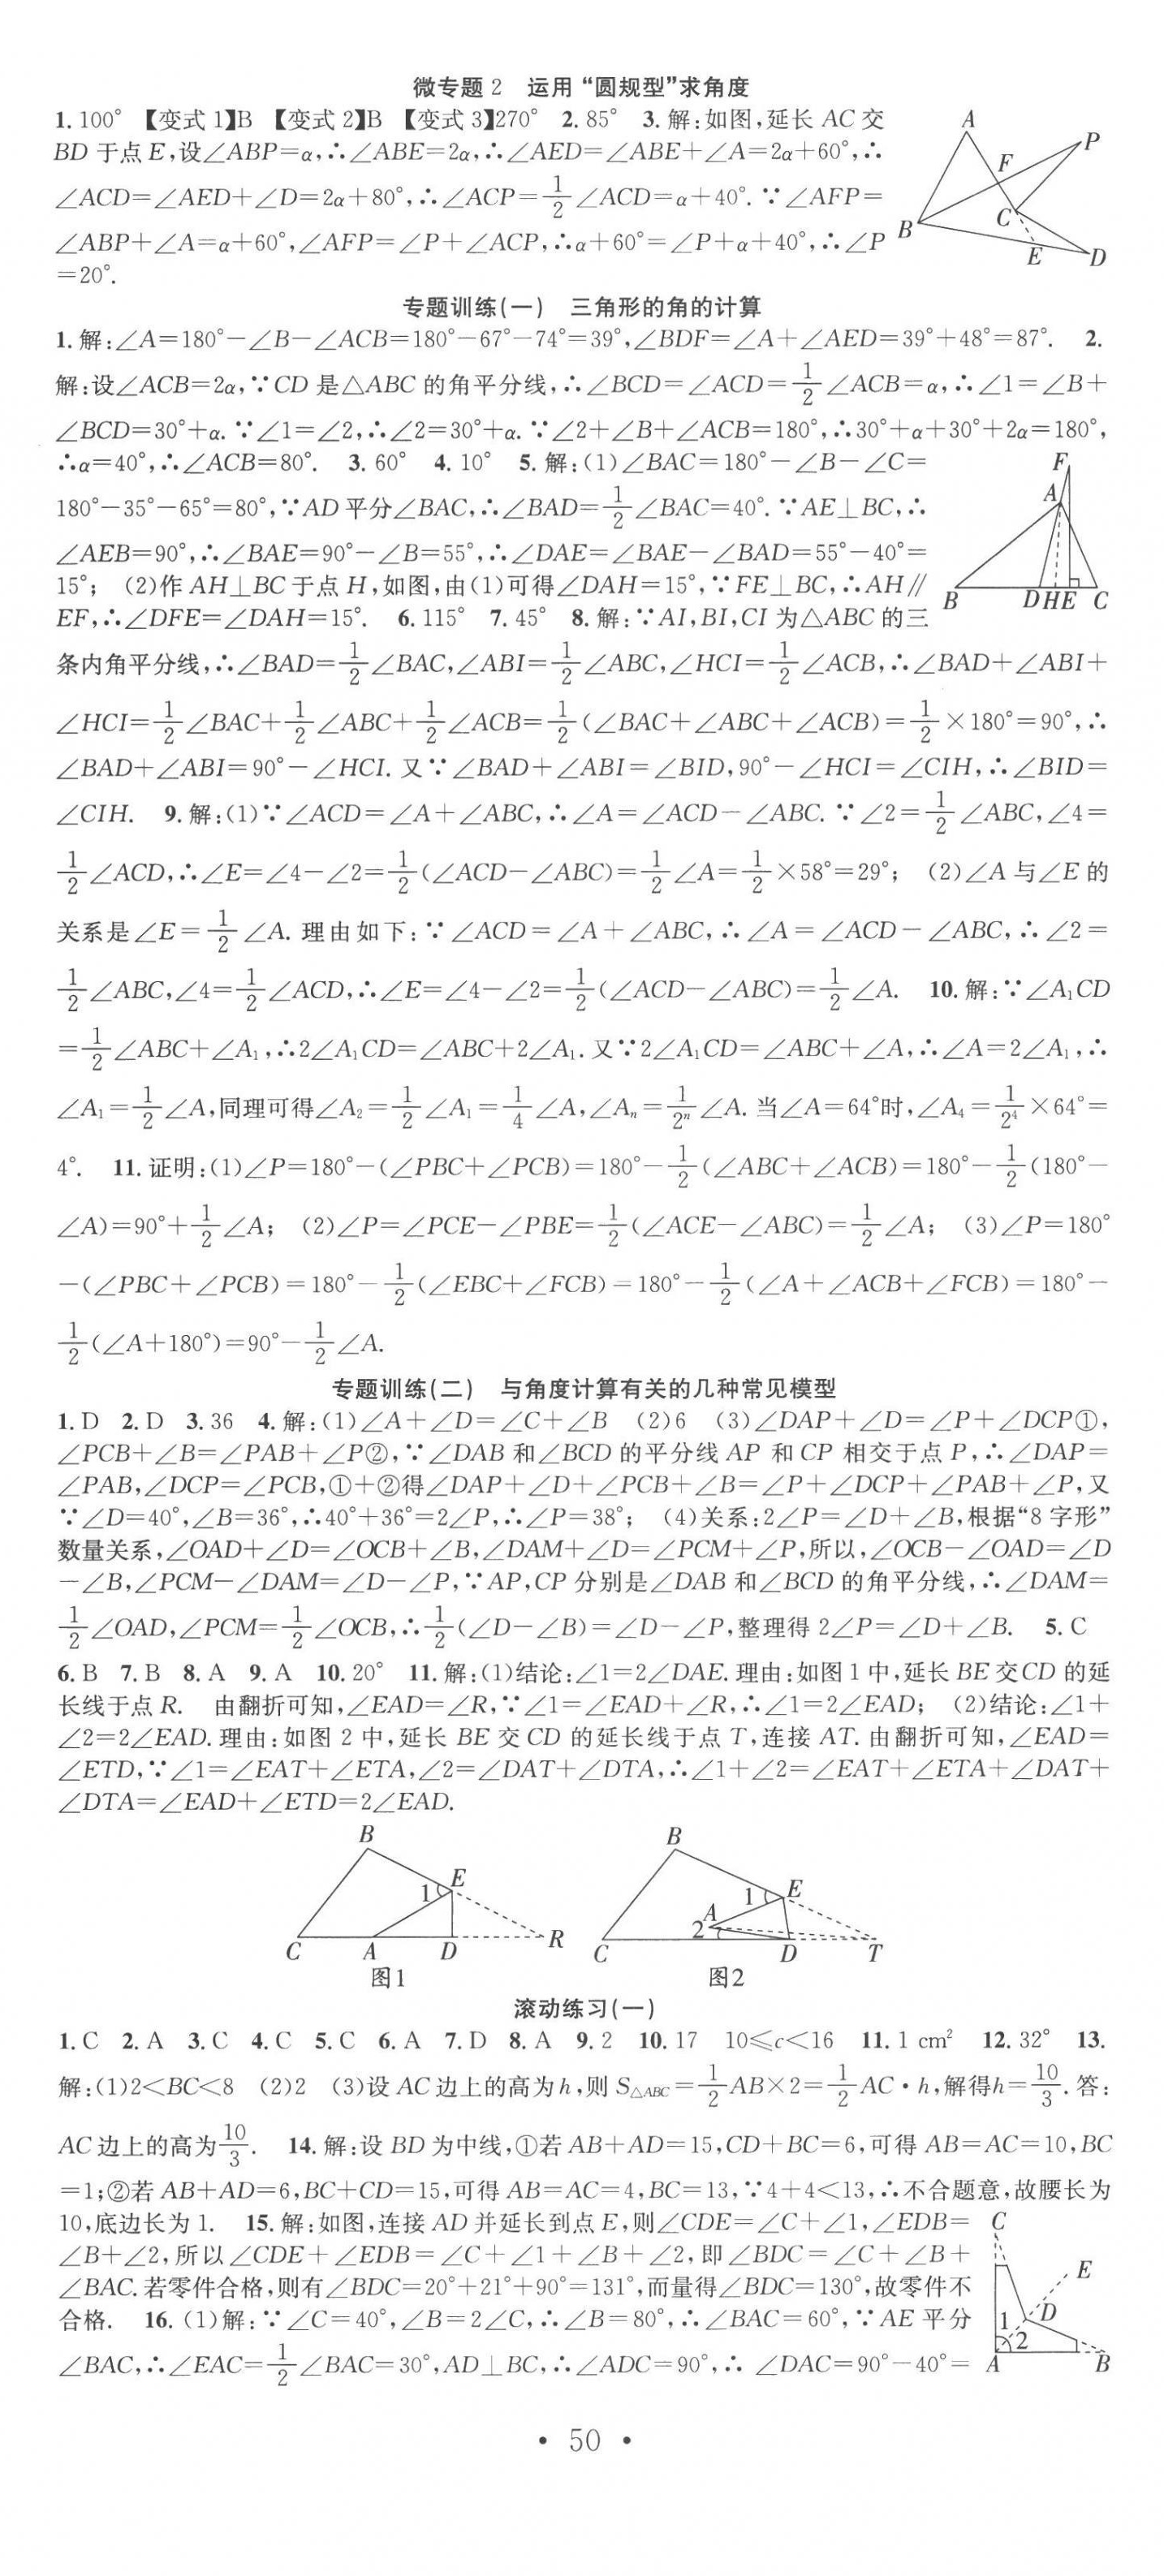 微专题 2 运用“圆规型”求角度
1. 100° 【变式 1】B 【变式 2】B 【变式 3】270° 2. 85° 3. 解:如图,延长 AC 交
BD 于点 E,设∠ABP=α,∴∠ABE=2α,∴∠AED=∠ABE+∠A=2α+60°,∴
∠ACD=∠AED+∠D=2α+80°,∴∠ACP=1/2∠ACD=α+40°. ∵∠AFP=
∠ABP+∠A=α+60°,∠AFP=∠P+∠ACP,∴α+60°=∠P+α+40°,∴∠P
=20°.
A
P
F
C
B
E
D
专题训练(一) 三角形的角的计算
1. 解:∠A=180°-∠B-∠ACB=180°-67°-74°=39°,∠BDF=∠A+∠AED=39°+48°=87°. 2.
解:设∠ACB=2α,∵CD 是△ABC 的角平分线,∴∠BCD=∠ACD=1/2∠ACB=α,∴∠1=∠B+
∠BCD=30°+α. ∵∠1=∠2,∴∠2=30°+α. ∵∠2+∠B+∠ACB=180°,∴30°+α+30°+2α=180°,
∴α=40°,∴∠ACB=80°. 3. 60° 4. 10° 5. 解:(1)∠BAC=180°-∠B-∠C=
180°-35°-65°=80°,∵AD 平分∠BAC,∴∠BAD=1/2∠BAC=40°. ∵AE⊥BC,∴
∠AEB=90°,∴∠BAE=90°-∠B=55°,∴∠DAE=∠BAE-∠BAD=55°-40°=
15°; (2)作 AH⊥BC 于点 H,如图,由(1)可得∠DAH=15°,∵FE⊥BC,∴AH∥
EF,∴∠DFE=∠DAH=15°. 6. 115° 7. 45° 8. 解:∵AI,BI,CI 为△ABC 的三
F
A
B DHE C
条内角平分线,∴∠BAD=1/2∠BAC,∠ABI=1/2∠ABC,∠HCI=1/2∠ACB,∴∠BAD+∠ABI+
∠HCI=1/2∠BAC+1/2∠ABC+1/2∠ACB=1/2(∠BAC+∠ABC+∠ACB)=1/2×180°=90°,∴
∠BAD+∠ABI=90°-∠HCI. 又∵∠BAD+∠ABI=∠BID,90°-∠HCI=∠CIH,∴∠BID=
∠CIH. 9. 解:(1)∵∠ACD=∠A+∠ABC,∴∠A=∠ACD-∠ABC. ∵∠2=1/2∠ABC,∠4=
1/2∠ACD,∴∠E=∠4-∠2=1/2(∠ACD-∠ABC)=1/2∠A=1/2×58°=29°; (2)∠A 与∠E 的
关系是∠E=1/2∠A. 理由如下:∵∠ACD=∠A+∠ABC,∴∠A=∠ACD-∠ABC,∴∠2=
1/2∠ABC,∠4=1/2∠ACD,∴∠E=∠4-∠2=1/2(∠ACD-∠ABC)=1/2∠A. 10. 解:∵∠A₁CD
=1/2∠ABC+∠A₁,∴2∠A₁CD=∠ABC+2∠A₁. 又∵2∠A₁CD=∠ABC+∠A,∴∠A=2∠A₁,∴
∠A₁=1/2∠A,同理可得∠A₂=1/2∠A₁=1/4∠A,∠Aₙ=1/2ⁿ∠A. 当∠A=64°时,∠A₄=1/2⁴×64°=
4°. 11. 证明:(1)∠P=180°-(∠PBC+∠PCB)=180°-1/2(∠ABC+∠ACB)=180°-1/2(180°-
∠A)=90°+1/2∠A; (2)∠P=∠PCE-∠PBE=1/2(∠ACE-∠ABC)=1/2∠A; (3)∠P=180°
-(∠PBC+∠PCB)=180°-1/2(∠EBC+∠FCB)=180°-1/2(∠A+∠ACB+∠FCB)=180°-
1/2(∠A+180°)=90°-1/2∠A.
专题训练(二) 与角度计算有关的几种常见模型
1. D 2. D 3. 36 4. 解:(1)∠A+∠D=∠C+∠B (2)6 (3)∠DAP+∠D=∠P+∠DCP①,
∠PCB+∠B=∠PAB+∠P②,∵∠DAB 和∠BCD 的平分线 AP 和 CP 相交于点 P,∴∠DAP=
∠PAB,∠DCP=∠PCB,①+②得∠DAP+∠D+∠PCB+∠B=∠P+∠DCP+∠PAB+∠P,又
∵∠D=40°,∠B=36°,∴40°+36°=2∠P,∴∠P=38°; (4)关系:2∠P=∠D+∠B,根据“8 字形”
数量关系,∠OAD+∠D=∠OCB+∠B,∠DAM+∠D=∠PCM+∠P,所以,∠OCB-∠OAD=∠D
-∠B,∠PCM-∠DAM=∠D-∠P,∵AP,CP 分别是∠DAB 和∠BCD 的角平分线,∴∠DAM=
1/2∠OAD,∠PCM=1/2∠OCB,∴1/2(∠D-∠B)=∠D-∠P,整理得 2∠P=∠D+∠B. 5. C
6. B 7. B 8. A 9. A 10. 20° 11. 解:(1)结论:∠1=2∠DAE. 理由:如图 1 中,延长 BE 交 CD 的延
长线于点 R. 由翻折可知,∠EAD=∠R,∵∠1=∠EAD+∠R,∴∠1=2∠EAD; (2)结论:∠1+
∠2=2∠EAD. 理由:如图 2 中,延长 BE 交 CD 的延长线于点 T,连接 AT. 由翻折可知,∠EAD=
∠ETD,∵∠1=∠EAT+∠ETA,∠2=∠DAT+∠DTA,∴∠1+∠2=∠EAT+∠ETA+∠DAT+
∠DTA=∠EAD+∠ETD=2∠EAD.
B
1
E
C A D R
图1
B
1
E
A
2
C D T
图2
滚动练习(一)
1. C 2. A 3. C 4. C 5. C 6. A 7. D 8. A 9. 2 10. 17 10≤c<16 11. 1 cm² 12. 32° 13.
解:(1)2<BC<8 (2)2 (3)设 AC 边上的高为 h,则 S△ABC=1/2AB×2=1/2AC·h,解得h=10/3. 答:
AC 边上的高为10/3. 14. 解:设 BD 为中线,①若 AB+AD=15,CD+BC=6,可得 AB=AC=10,BC
=1;②若 AB+AD=6,BC+CD=15,可得 AB=AC=4,BC=13,∵4+4<13,∴不合题意,故腰长为
10,底边长为 1. 15. 解:如图,连接 AD 并延长到点 E,则∠CDE=∠C+∠1,∠EDB=
∠B+∠2,所以∠CDE+∠EDB=∠C+∠1+∠B+∠2,即∠BDC=∠C+∠B+
∠BAC. 若零件合格,则有∠BDC=20°+21°+90°=131°,而量得∠BDC=130°,故零件不
合格. 16. (1)解:∵∠C=40°,∠B=2∠C,∴∠B=80°,∴∠BAC=60°,∵AE 平分
∠BAC,∴∠EAC=1/2∠BAC=30°,AD⊥BC,∴∠ADC=90°,∴∠DAC=90°-40°=
C
E
D
1
2
A
B
• 50 •